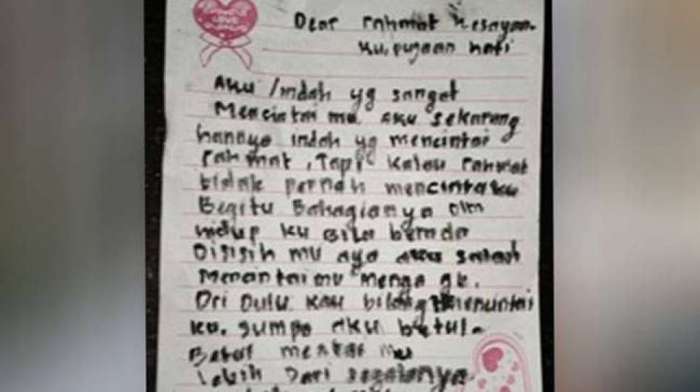 Dear rahmat kesayan-
ku, pujaan hati
Aku /indah yg sangat
Mencintai mu aku sekarang
hanya indah yg mencintai
rahmat, Tapi kalau rahmat
tidak pernah mencintaku
Begitu Bahagianya
hidup ku Bila berada
Disisih mu
Mencintaimu
Dri Dulu kau bilang
ku. sumpa aku betul-
Betul
Lebih Dari segalanya